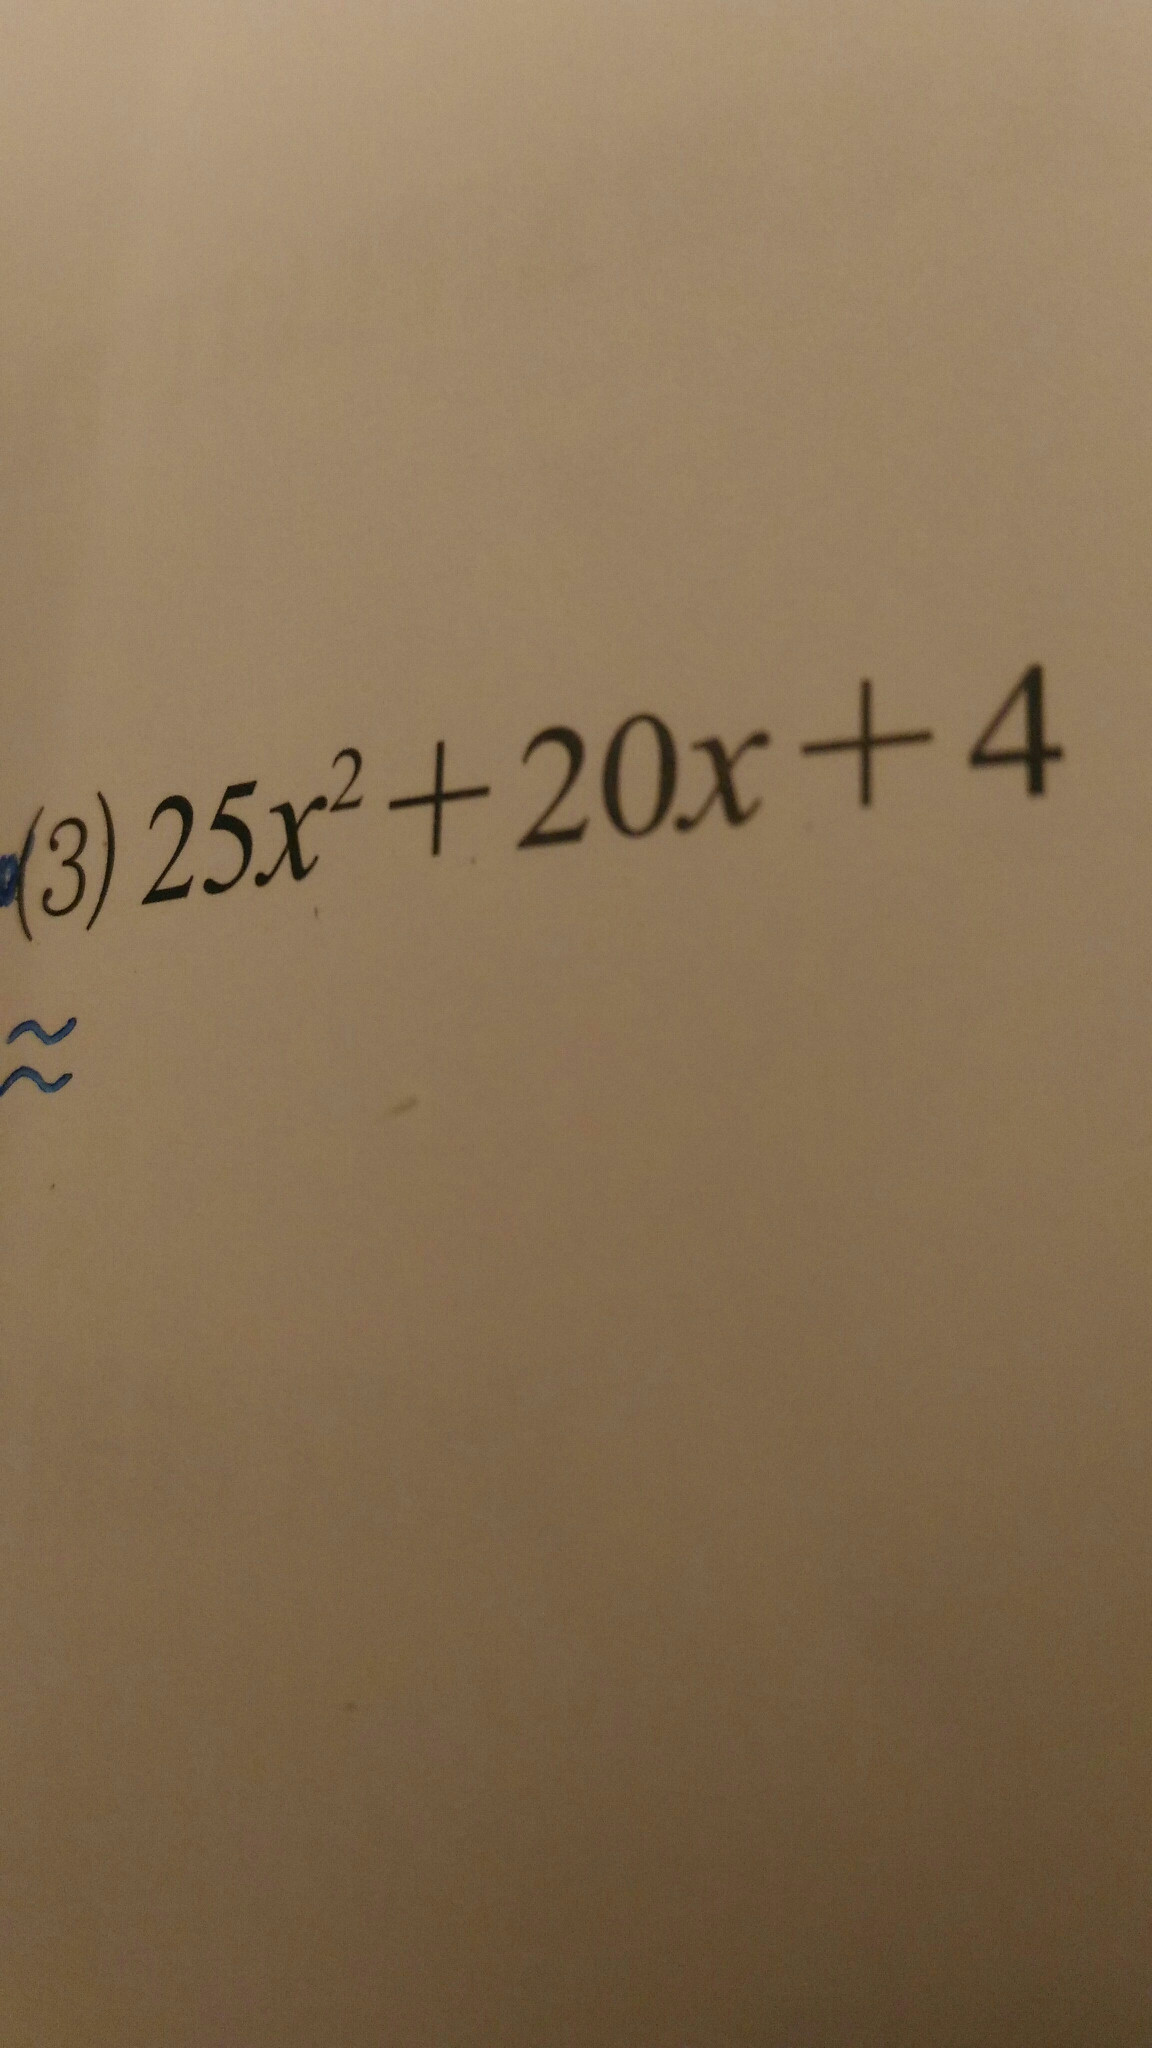 (3) 25x² + 20x + 4